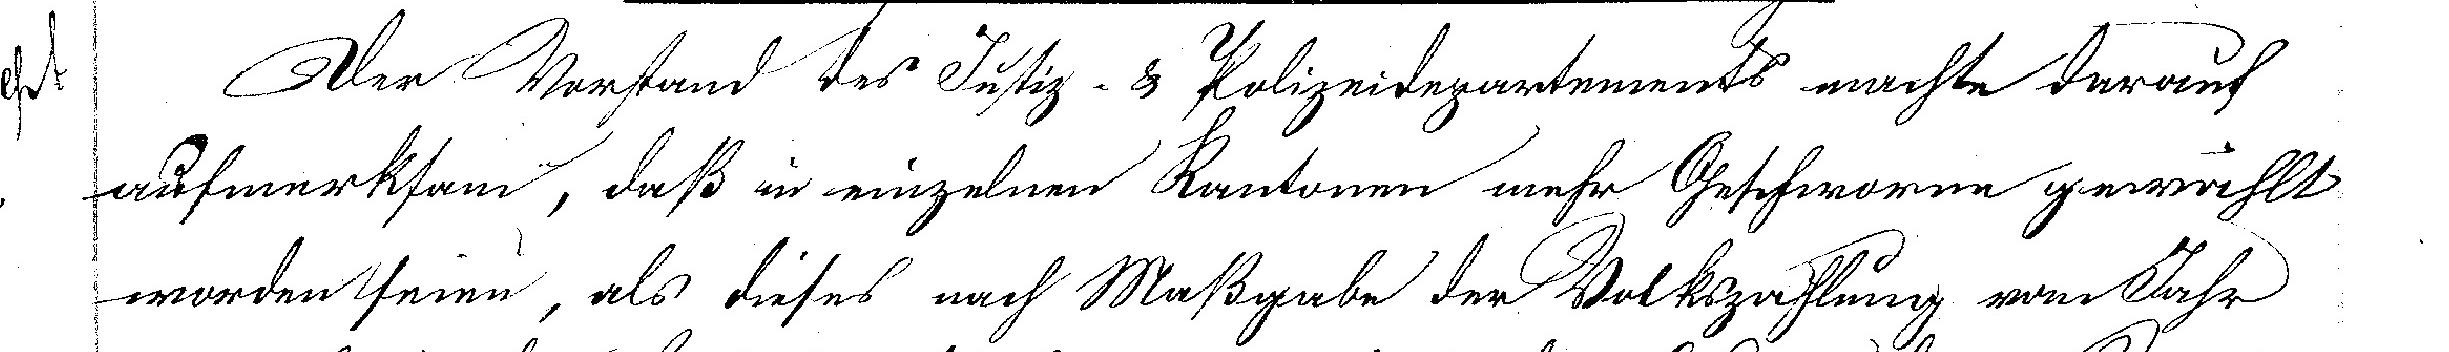 Der Vorstand des Justiz- & Polizeidepartements machte darauf
aufmerksam, daß in einzelnen Kantonen mehr Geschworne gewählt
worden seien, als dieses nach Maßgabe der Volkszählung vom Jahr